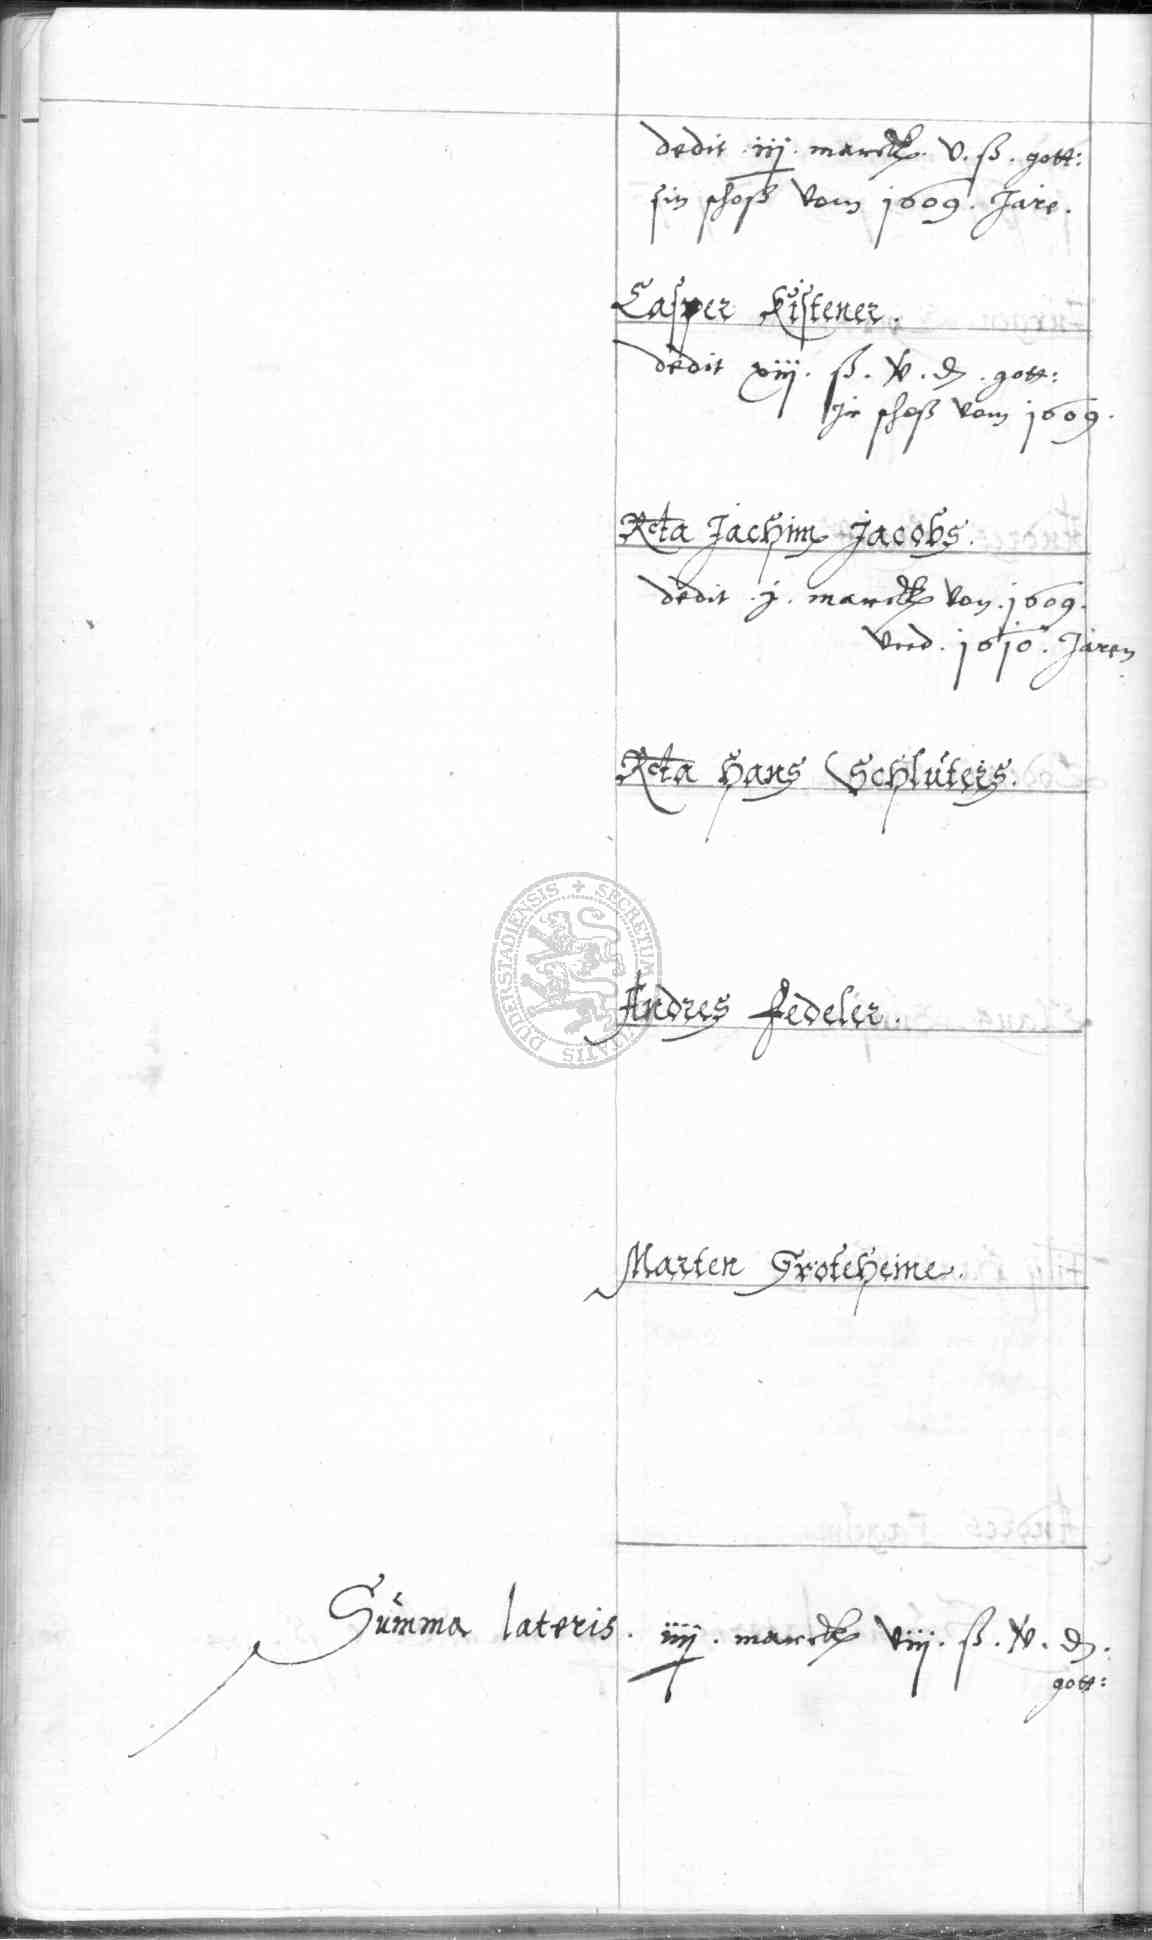 dedit . iij . marck . v . ß . gott:
sin schoß vom 1609 . Jare .
Casper Kistener .
dedit xiij . ß . v . ₰ . gott:
Jr schoß vom 1609 .
Rcta Jachim Jacobs .
dedit . j . marck von . 1609 .
vnd . 1610 . Jaren
Rcta Hans Schluters .
SECRETUM CIVITATIS DUDERSTADIENSIS
Andres Fedeler .
Marten Groteheime .
Summa lateris . iiij . marck viij . ß . v . ₰ .
gott: